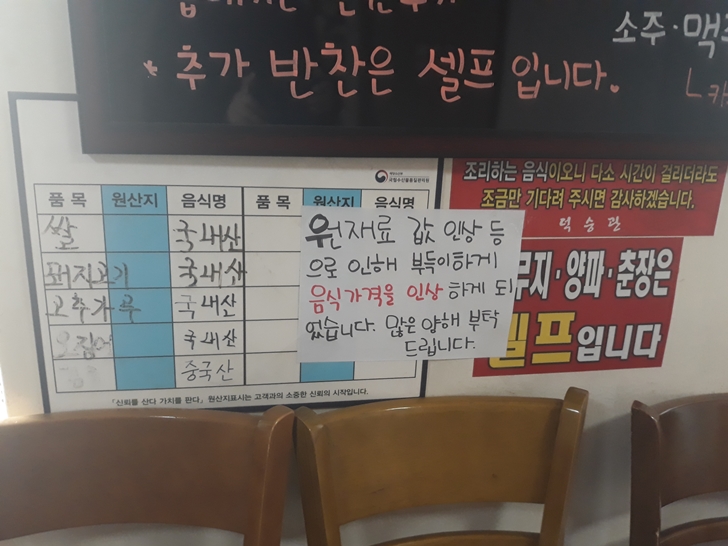 * 추가 반찬은 셀프입니다.
소주·맥주
품 목 원산지 음식명 품 목 원산지 음식명
쌀 국내산
돼지고기 국내산
고추가루 국내산
오징어 국내산
중국산
「신뢰를 산다 가치를 판다」 원산지표시는 고객과의 소중한 신뢰의 시작입니다.
원재료 값 인상 등
으로 인해 부득이하게
음식가격을 인상 하게 되
었습니다. 많은 양해 부탁
드립니다.
조리하는 음식이오니 다소 시간이 걸리더라도
조금만 기다려 주시면 감사하겠습니다.
덕승관
무지·양파·춘장은
셀프입니다